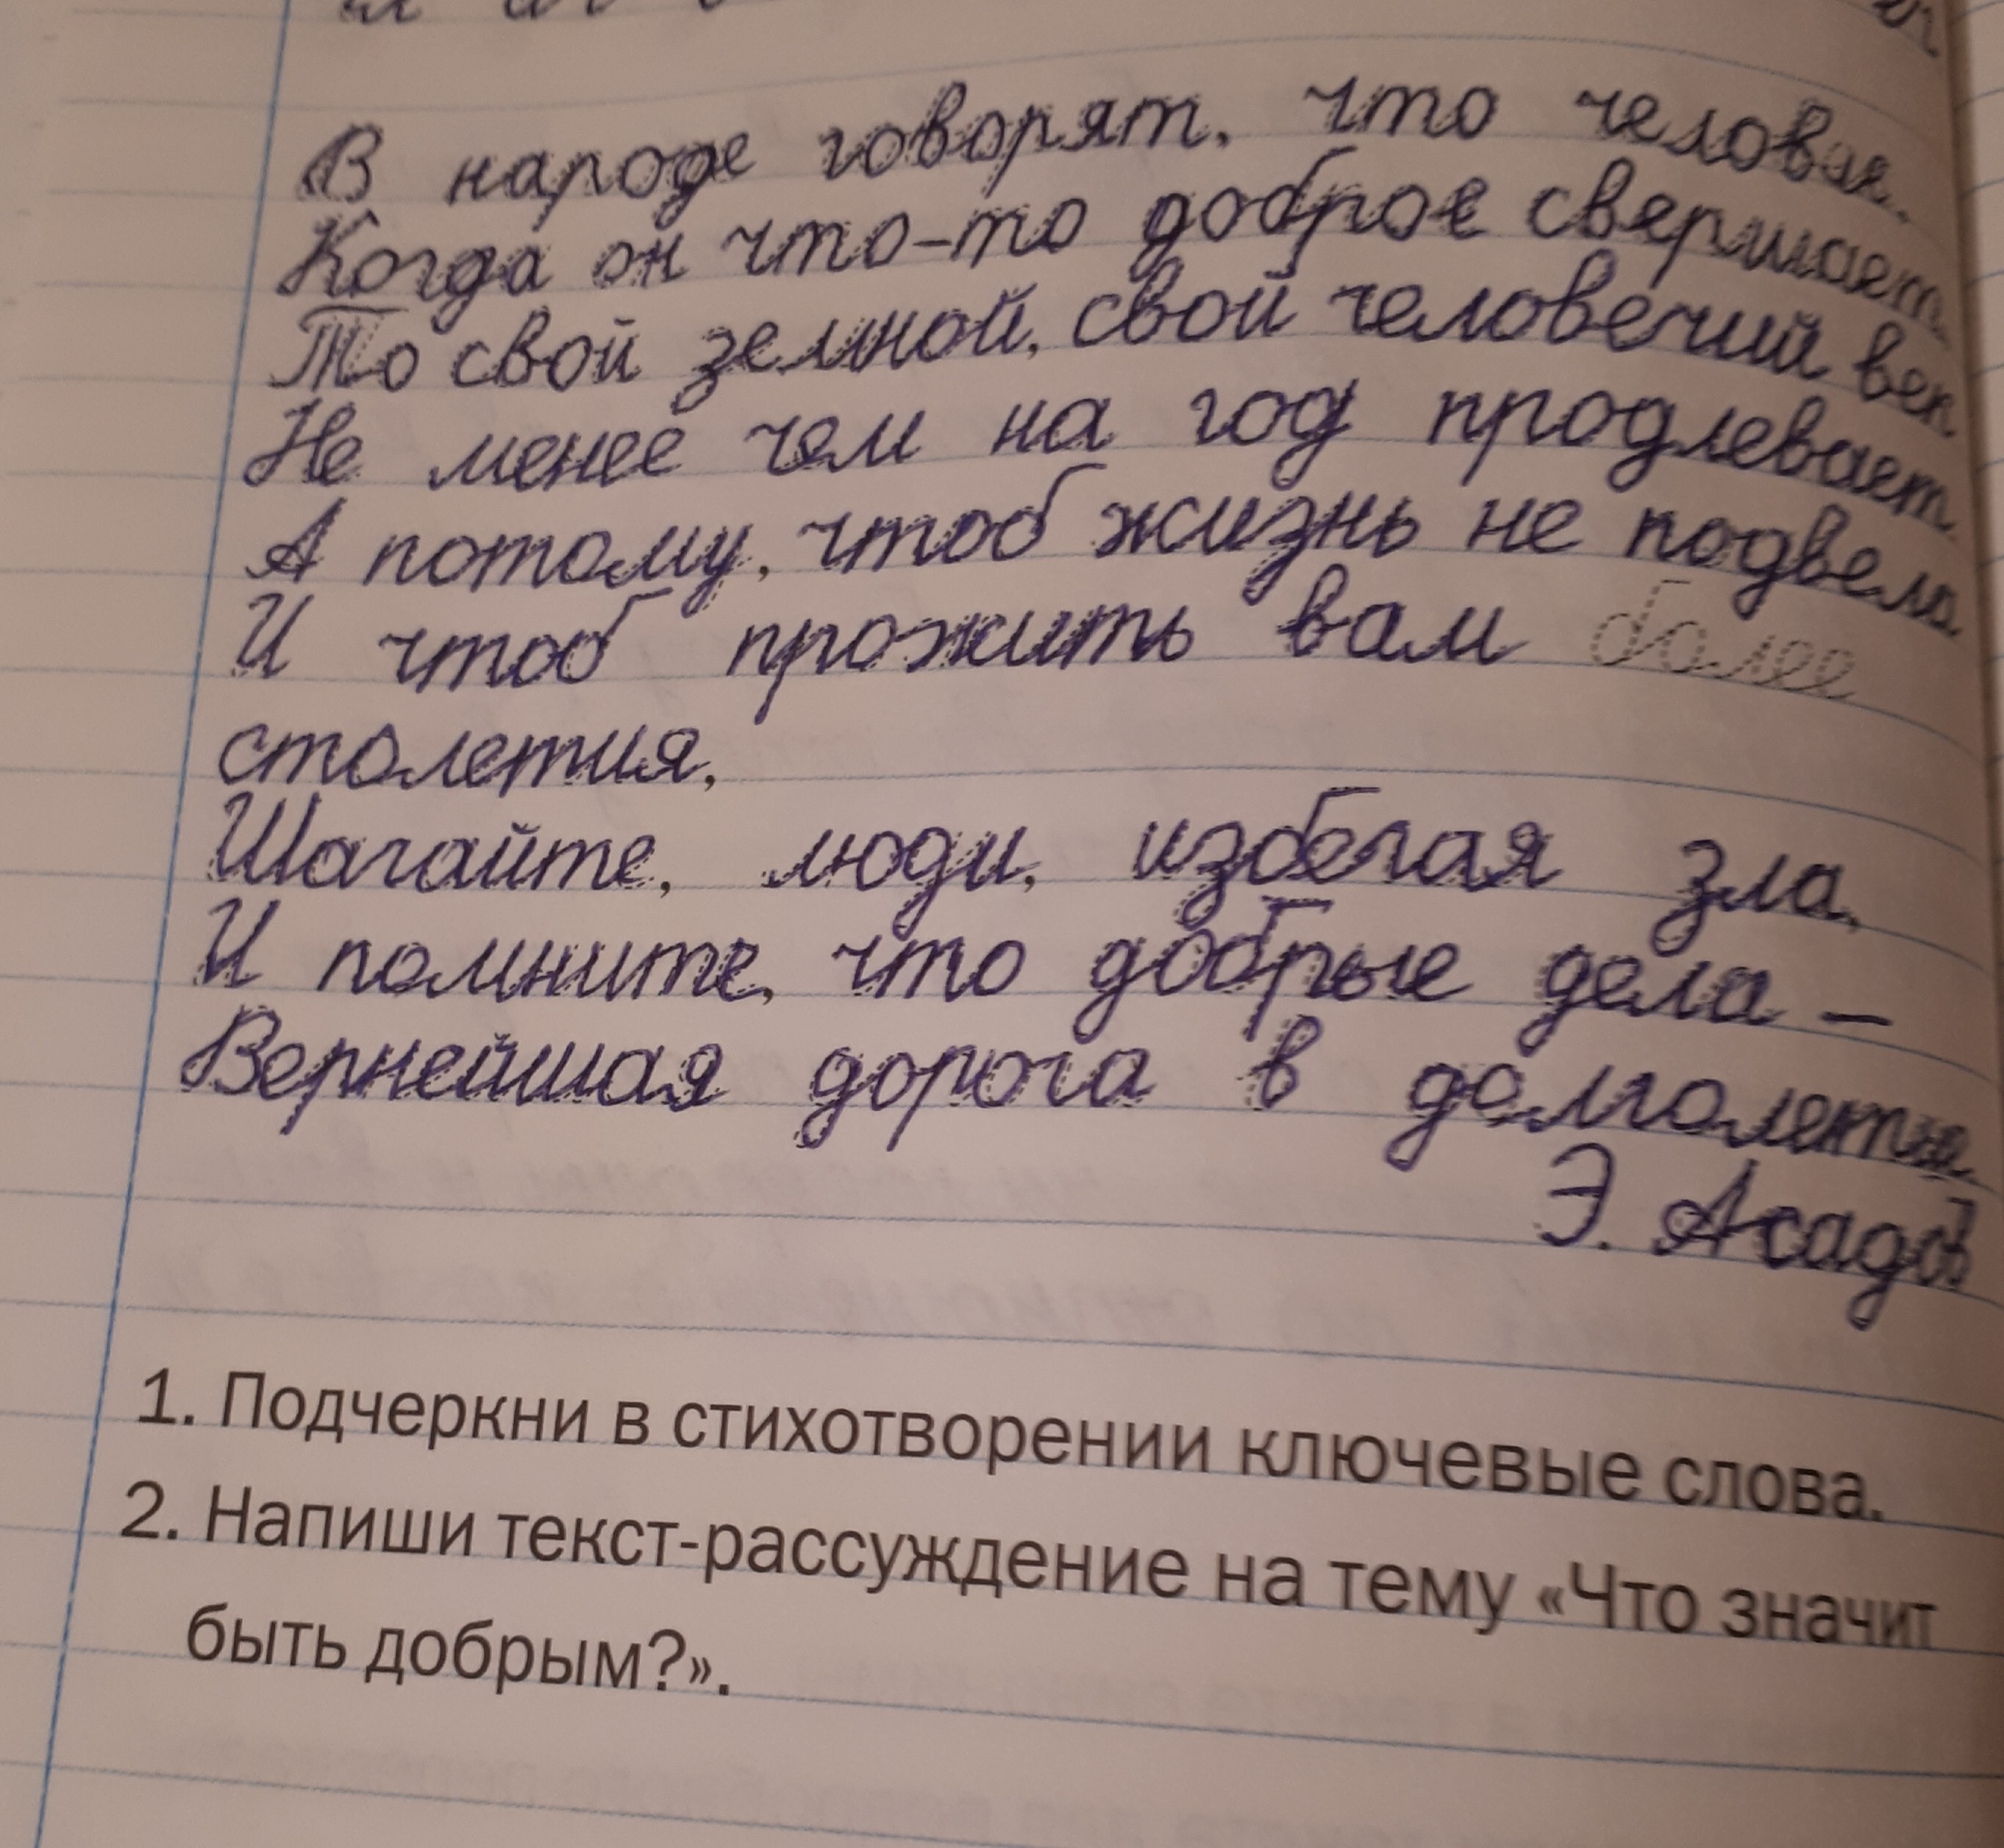 В народе говорят, что человек,
Когда он что-то доброе свершает,
То свой земной, свой человечий век
Не менее чем на год продлевает.
А потому, чтоб жизнь не подвела
И чтоб прожить вам более
столетия,
Шагайте, люди, избегая зла,
И помните, что добрые дела –
Вернейшая дорога в долголетие
Э. Асадов
1. Подчеркни в стихотворении ключевые слова.
2. Напиши текст-рассуждение на тему «Что значит
быть добрым?».